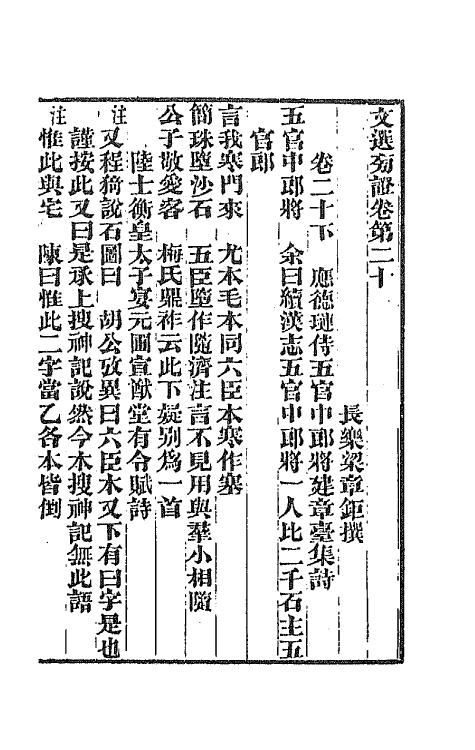 文選旁證卷第二十
長樂梁章鉅撰
卷二十下　應德璉侍五官中郎將建章臺集詩
五官中郎將　余曰續漢志五官中郎將一人比二千石主五
官郎
言我寒門來　尤本毛本同六臣本寒作塞
簡珠墮沙石　五臣墮作隨濟注言不見用與羣小相隨
公子敬愛客　梅氏鼎祚云此下疑别爲一首
陸士衡皇太子宴元圃宣猷堂有令賦詩
注又程猗說石圖曰　胡公攷異曰六臣本又下有曰字是也
謹按此又曰是承上搜神記說然今本搜神記無此語
注惟此與宅　陳曰惟此二字當乙各本皆倒